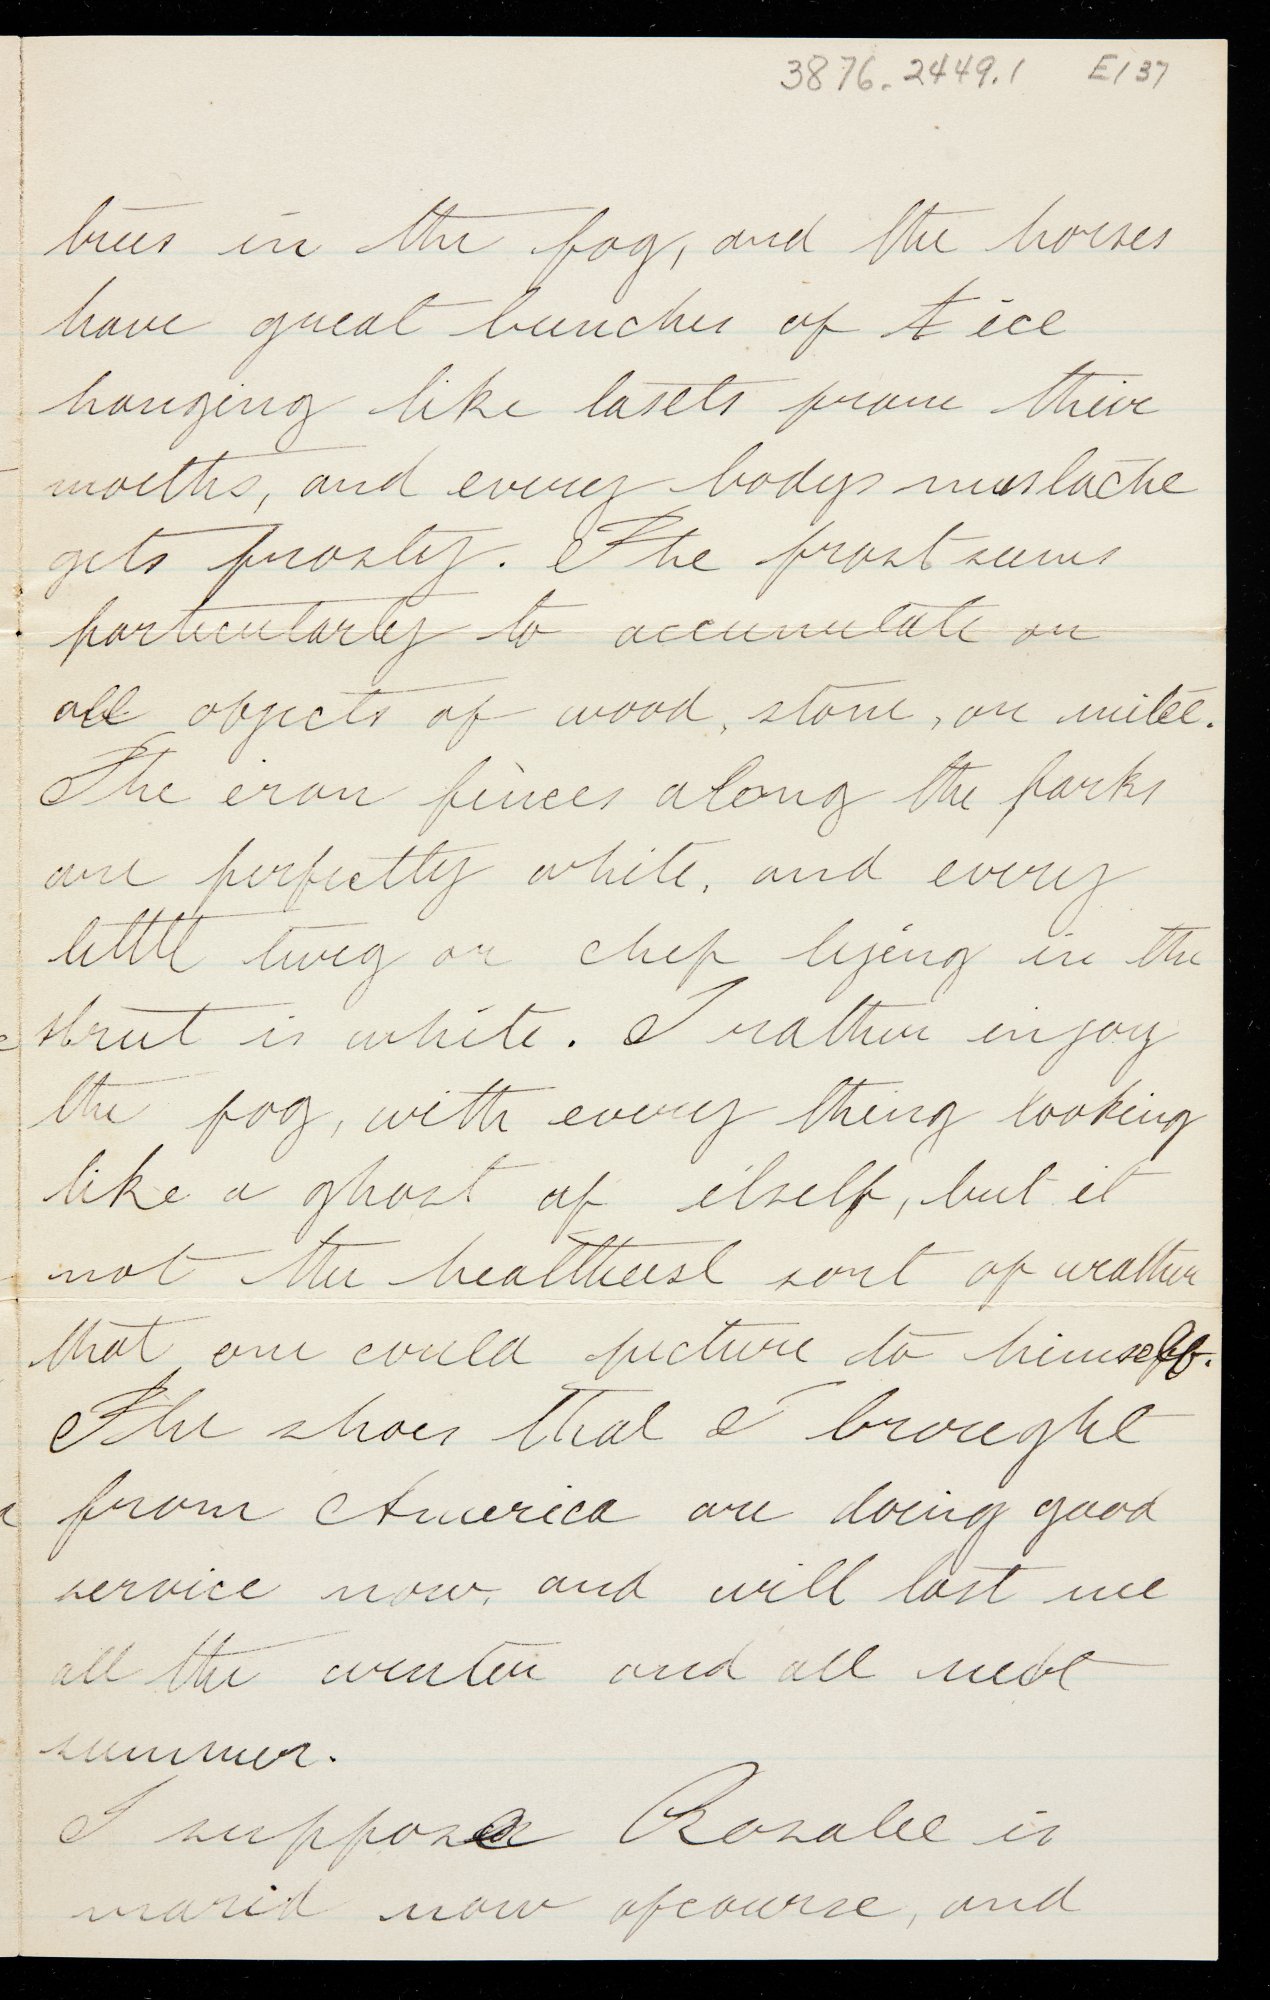 3876.2449.1 E137
trees in the fog, and the horses
have great bunches of t ice
hanging like tasels from thier
mouths, and every bodys mustache
gets frosty. The frost seems
particularly to accumulate on
all objects of wood, stone, or
The iron fences along the parks
are perfectly white, and every
little twig or chip lying in the
street is white. I rather enjoy
the fog, with every thing looking
like a ghost of itself, but it
not the healthiest sort of weather
that one could picture to himself.
The shoes that I brought
from America are doing good
service now, and will last me
all the winter and all next
summer.
I suppose Rosalie is
marid now ofcourse, and